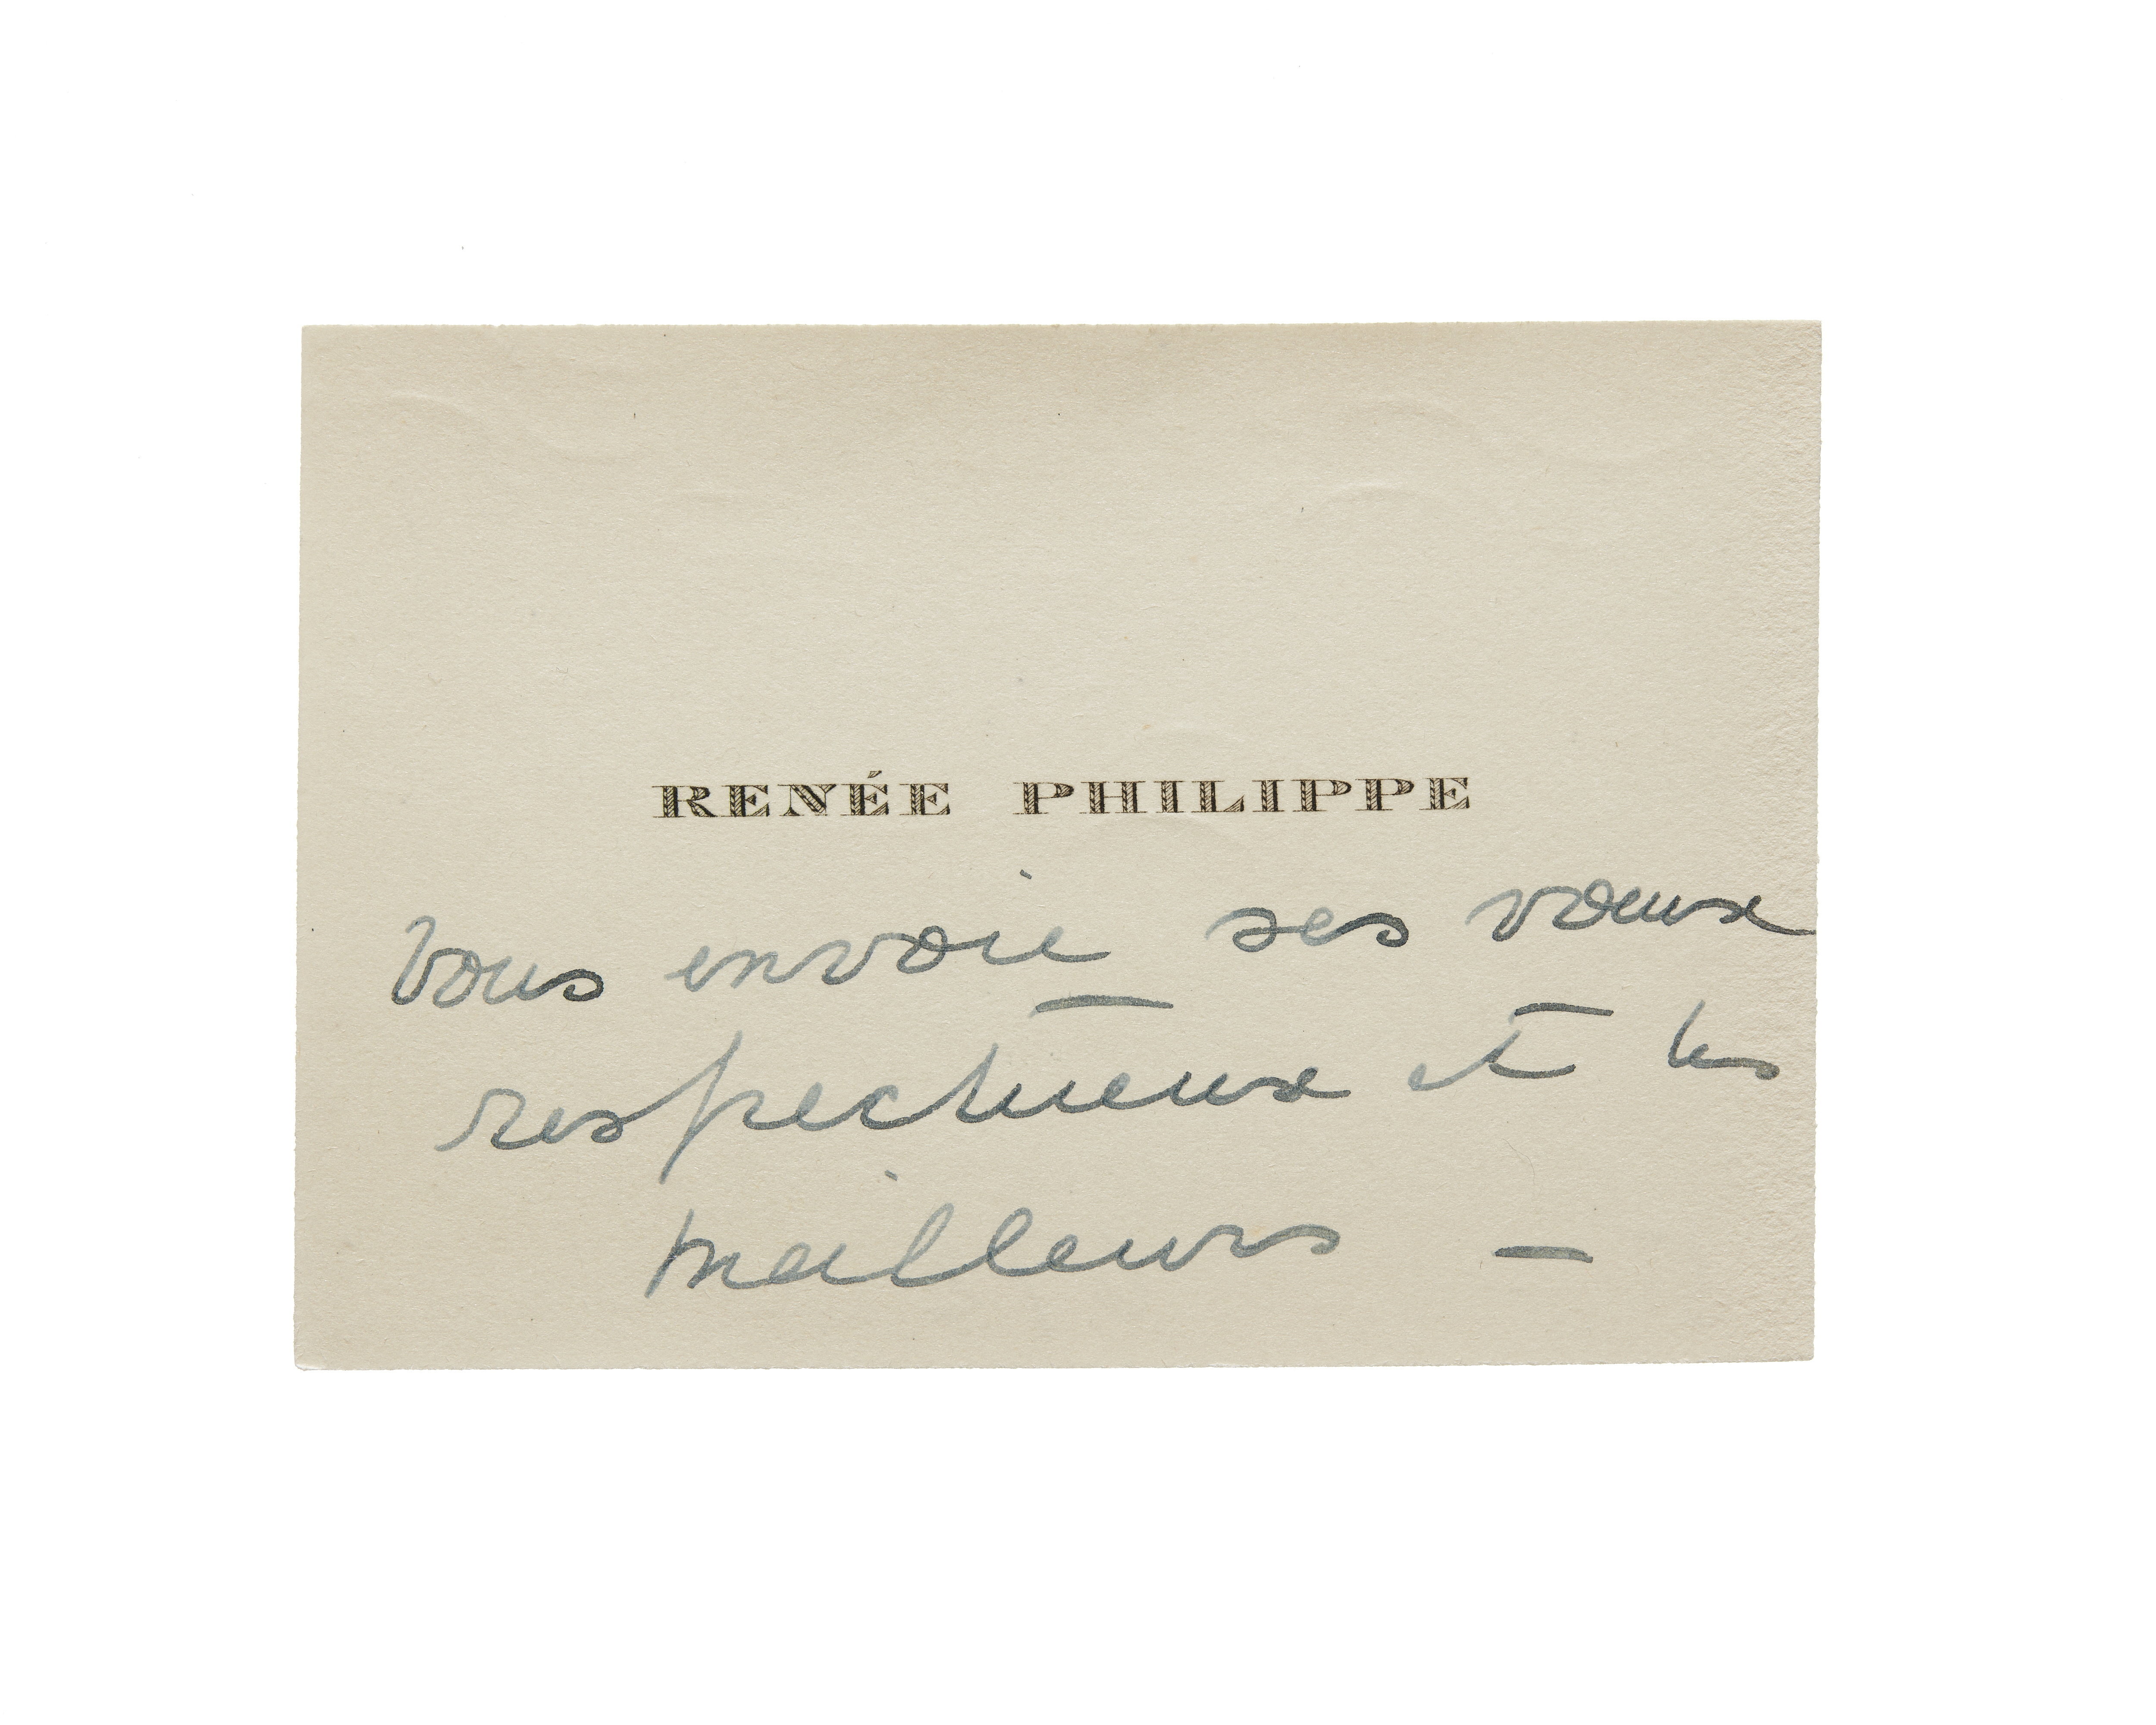 RENÉE PHILIPPE
Vous envoie ses vœux
respectueux et les
meilleurs –